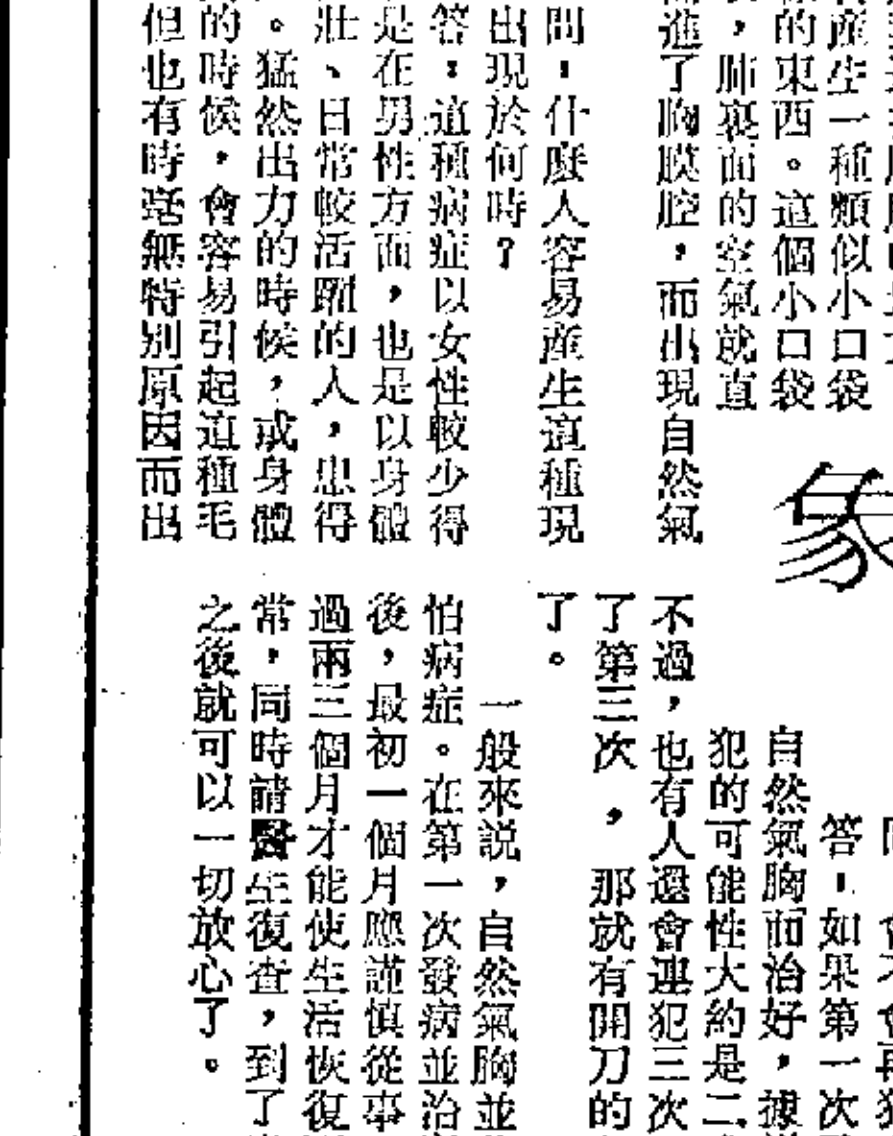 產生一種類似小口袋
的東西。這個小口袋
，肺裏面的空氣就直
進了胸膜腔，而出現自然氣
問：什麼人容易產生這種現
出現於何時？
答：這種病症以女性較少得
是在男性方面，也是以身體
壯、日常較活躍的人，患得
。猛然出力的時候，或身體
的時候，會容易引起這種毛
但也有時毫無特別原因而出
象
答：如果第一次
自然氣胸而治好，據
犯的可能性大約是二
不過，也有人還會連犯三次
了第三次，那就有開刀的
了。
一般來說，自然氣胸並
怕病症。在第一次發病並治
後，最初一個月應謹慎從事
過兩三個月才能使生活恢復
常，同時請醫生復查，到了
之後就可以一切放心了。